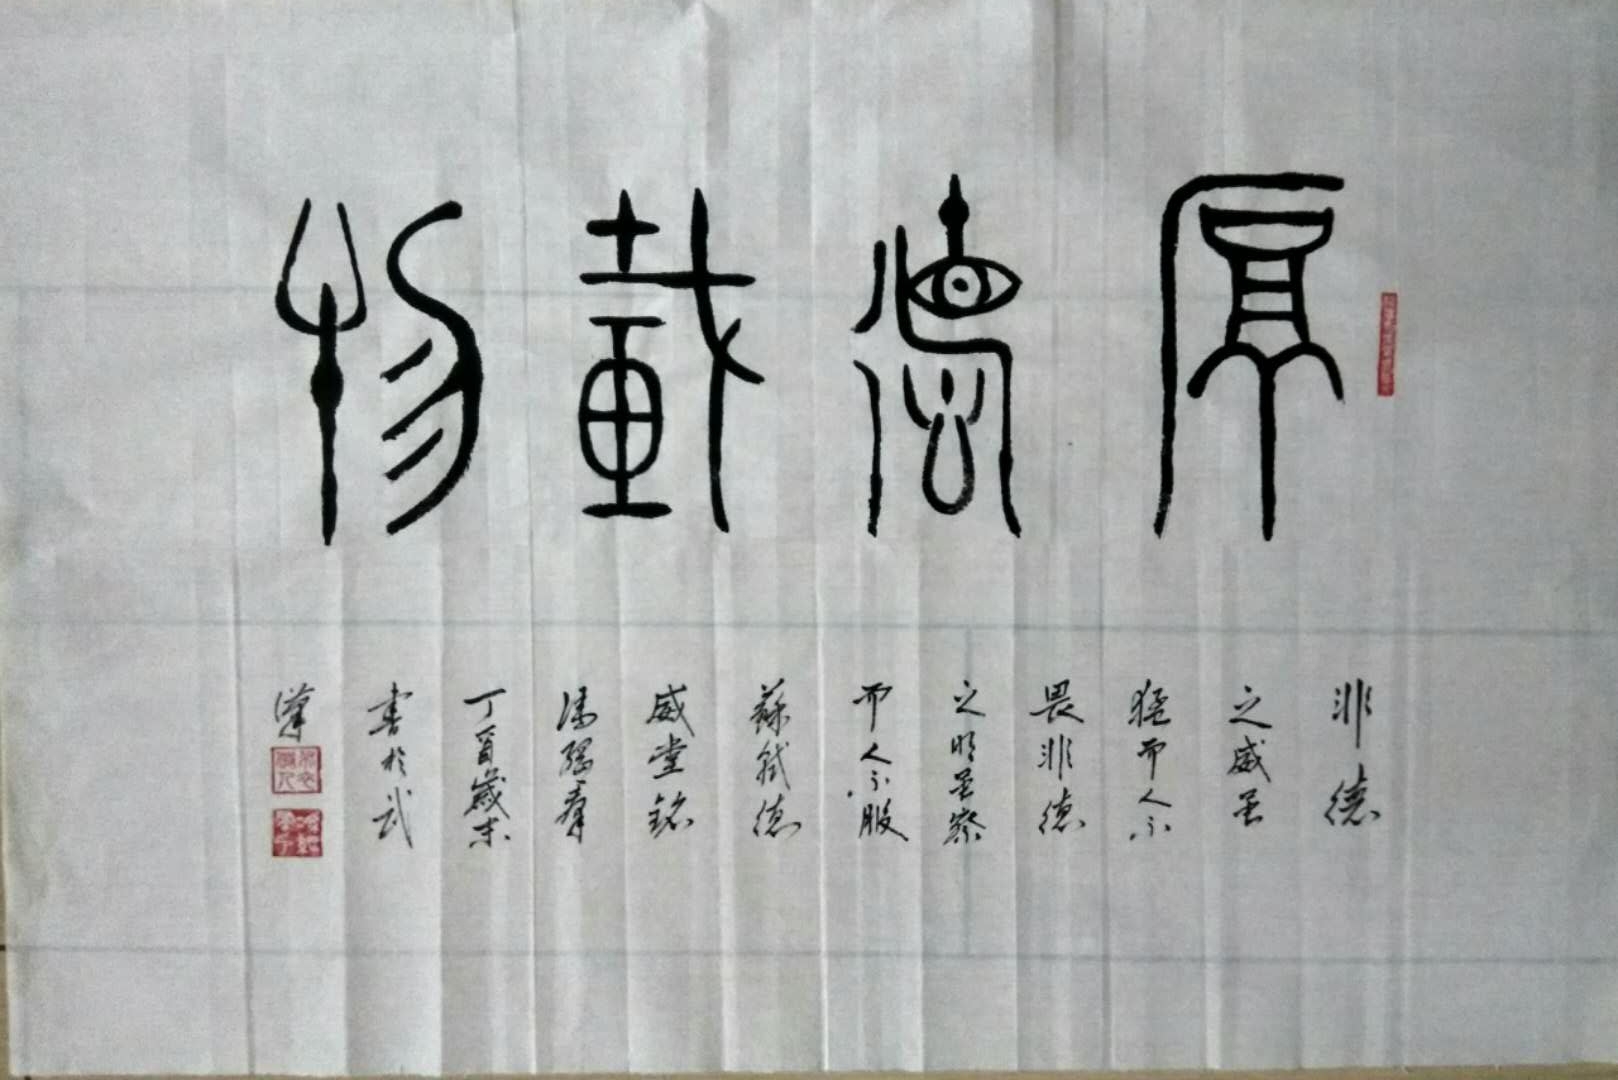 厚德載物
非德
之威虽
猛而人不
畏非德
之明虽察
而人不服
蘇軾德
威堂銘
馮
丁酉歲末
書於武
漢